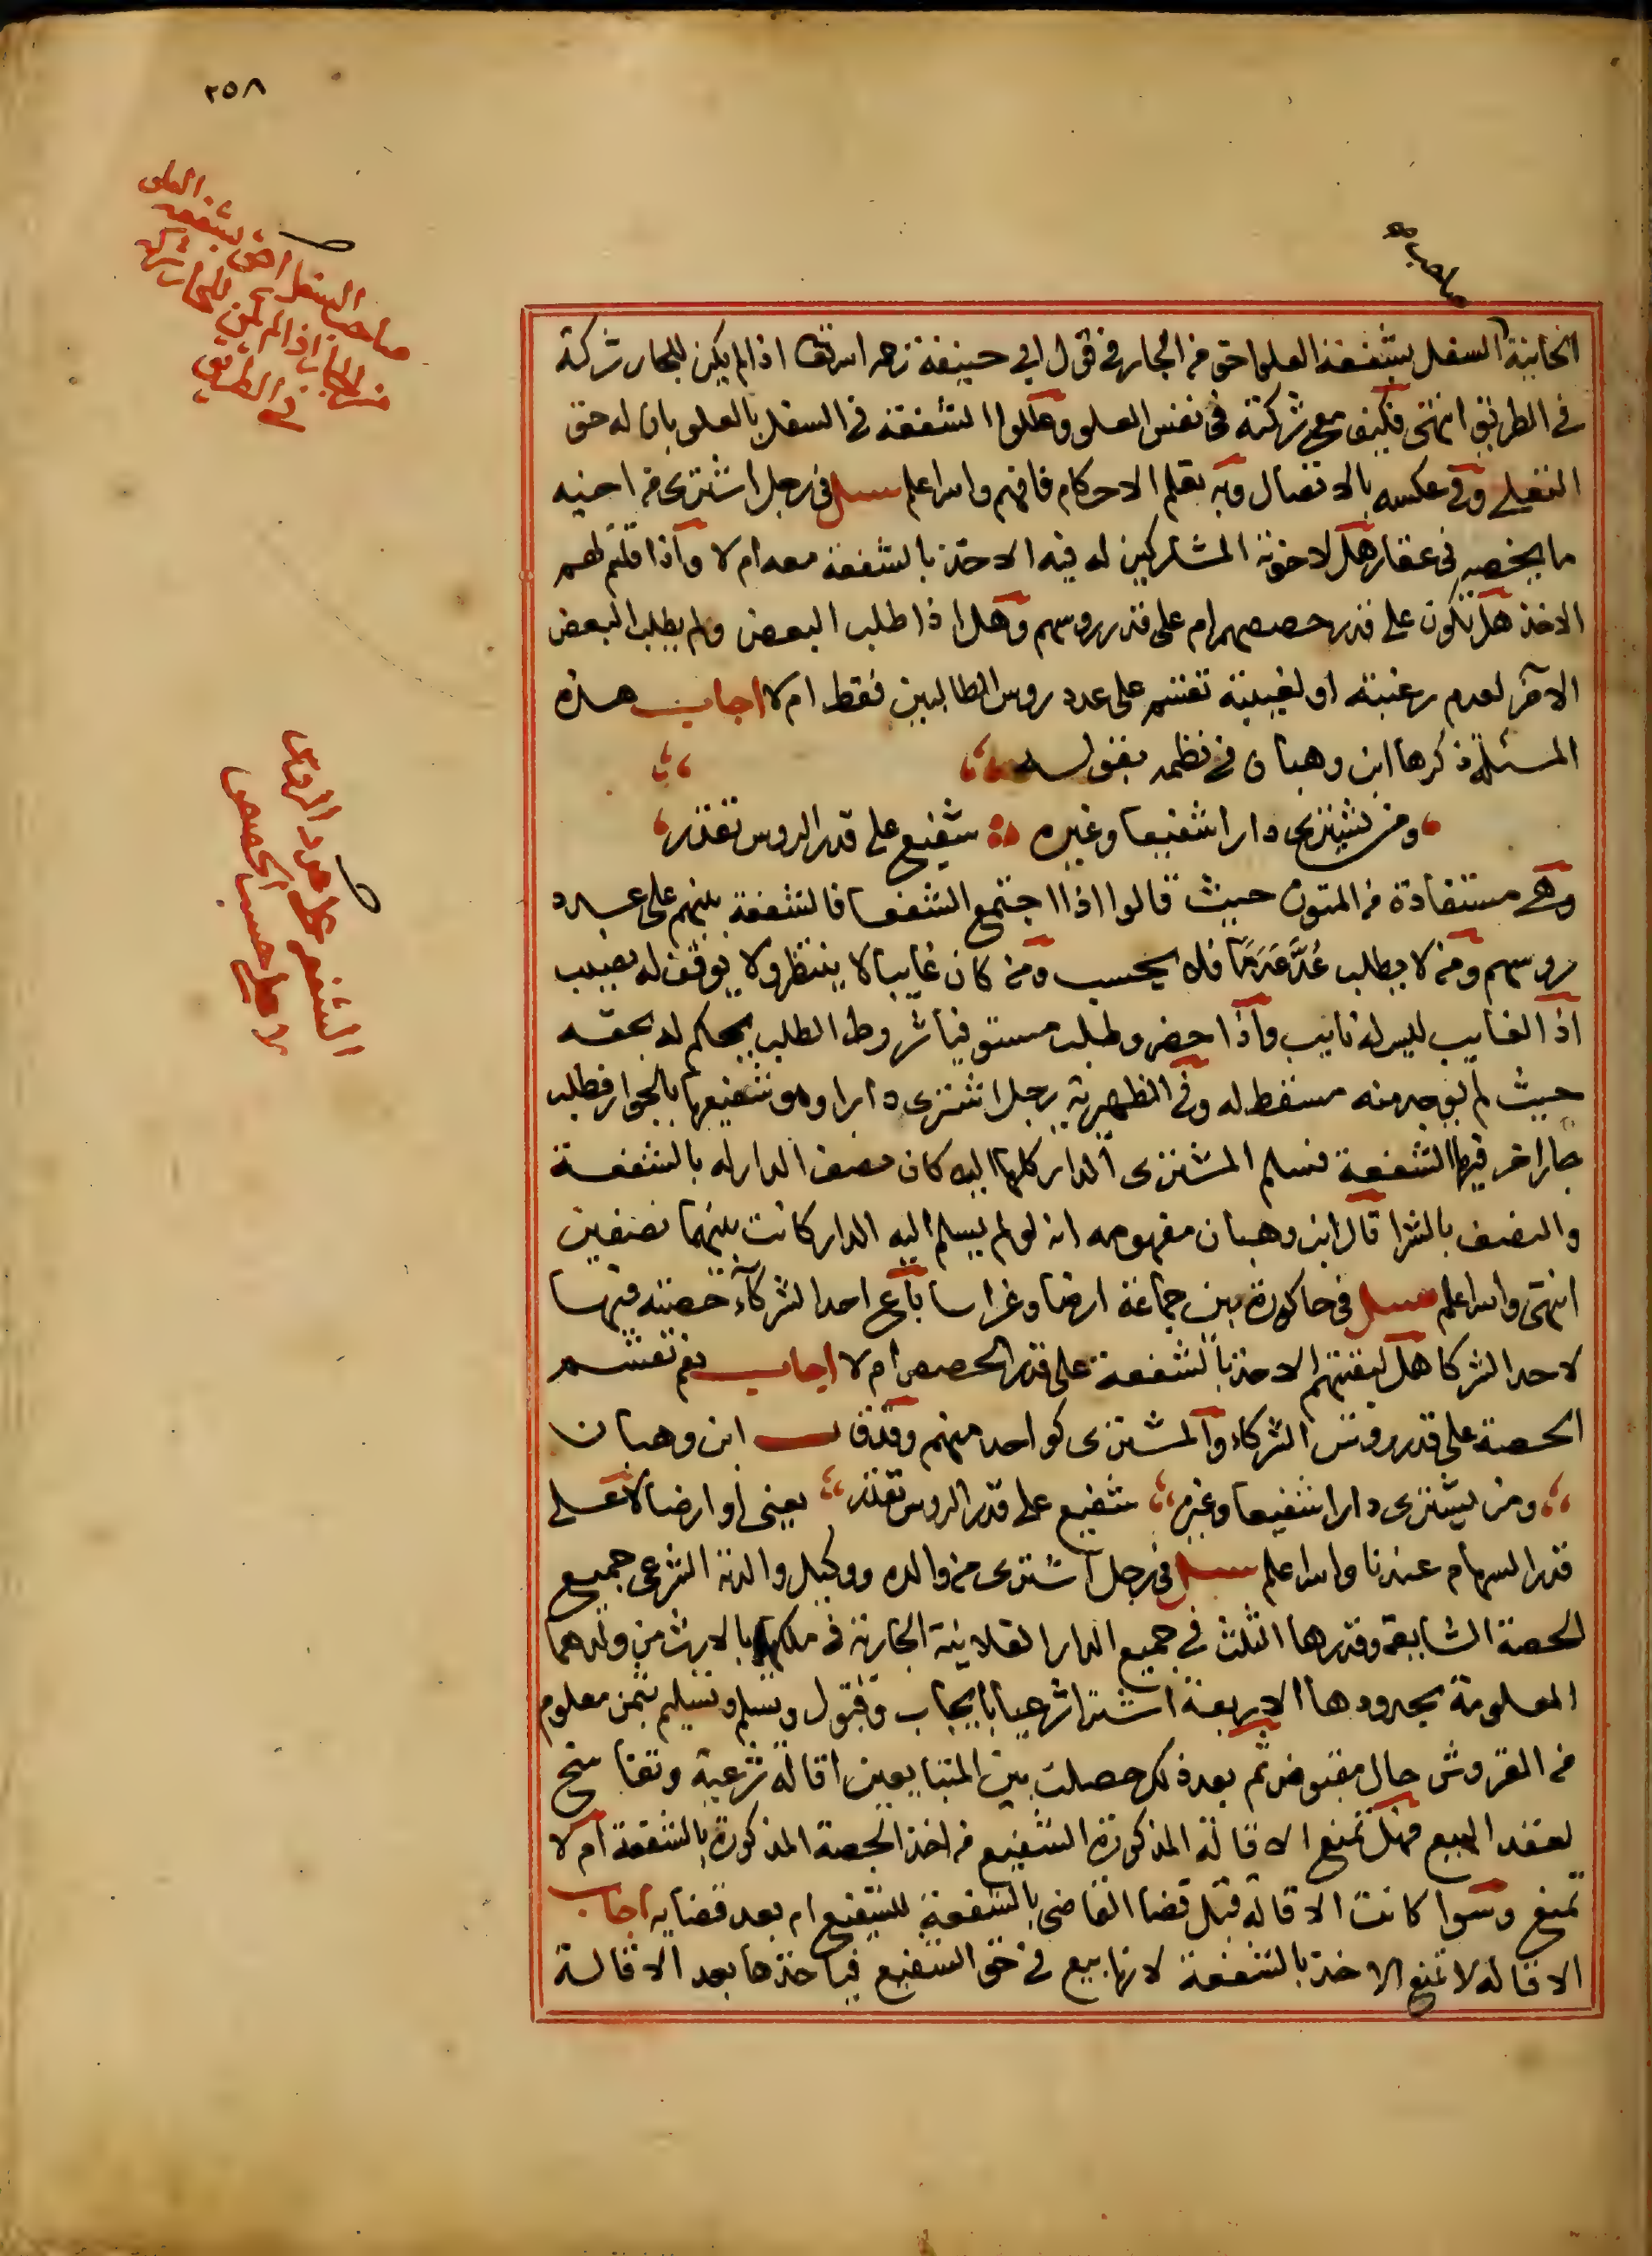 ٢٥٨
صاحب السفل احق بشفعة العلو
من الجار اذا لم يكن للجار شركة
في الطريق
صاحب صح
الخانية السفل بشفعة العلو احق من الجار في قول ابي حنيفة رحمه الله تعالى اذا لم يكن للجار شركة
في الطريق انتهى فكيف مع شركته في نفس العلو وعللوا الشفعة في السفل بالعلو بان له حق
التعلي وفي عكسه بالاتصال وبه تعلم الاحكام فافهم والله اعلم سئل في رجل اشترى من اخيه
ما يخصه في عقار هل لاخوته المشاركين له فيه الاخذ بالشفعة معه ام لا واذا قلتم لهم
الاخذ هل تكون على قدر حصصهم ام على قدر روسهم وهل اذا طلب البعض ولم يطلب البعض
الاخر لعدم رغبته او لغيبته تقسم على عدد روس الطالبين فقط ام لا اجاب هذه
المسئلة ذكرها ابن وهبان في نظمه بقوله
ومن يشتري دارا شفيعا وغيره شفيع على قدر الروس تقدر
وهي مستفادة من المتون حيث قالوا اذا اجتمع الشفعا فالشفعة بينهم على عدد
روسهم ومن لا يطلب عُدَّ عَدَمًا فلا يحسب ومن كان غايبا لا ينتظر ولا يوقف له نصيب
اذ الغايب ليس له نايب واذا حضر وطلب مستوفيا شروط الطلب يحكم له بحقه
حيث لم يوجد منه مسقط له وفي الظهيرية رجل اشترى دارا وهو شفيعها بالجوار فطلب
جار اخر فيها الشفعة فسلم المشتري الدار كلها اليه كان نصف الدار له بالشفعة
والنصف بالشرا قال ابن وهبان مفهومه انه لو لم يسلم اليه الدار كانت بينهما نصفين
انتهى والله اعلم سئل في حاكورة بين جماعة ارضا وغراسا باع احد الشركاء حصته فيها
لاحد الشركا هل لبقيتهم الاخذ بالشفعة على قدر الحصص ام لا اجاب نعم تقسم
الحصة على قدر روس الشركاء والمشتري كواحد منهم وقد قال ابن وهبان
ومن يشتري دارا شفيعا وغيره شفيع على قدر الروس تقدر يعني او ارضا لا على
قدر السهام عندنا والله اعلم سئل في رجل اشترى من والده ووكيل والدته الشرعي جميع
الحصة الشايعة وقدرها الثلث في جميع الدار الفلانية الجارية في ملكهما بالارث من ولدهما
المعلومة بحدودها الاربعة اشترا شرعيا بايجاب وقبول وتسلم وتسليم بثمن معلوم
من القروش حال مقبوض ثم بعد ذلك حصلت بين المتبايعين اقالة شرعية وتفاسخ
لعقد البيع فهل تمنع الاقالة المذكورة الشفيع من اخذ الحصة المذكورة بالشفعة ام لا
تمنع وسوا كانت الاقالة قبل قضا القاضي بالشفعة للشفيع ام بعد قضايه اجاب
الاقالة لا تمنع الاخذ بالشفعة لانها بيع في حق الشفيع فياخذها بعد الاقالة
الشفعة على عدد الروس
لا على حسب الحصص